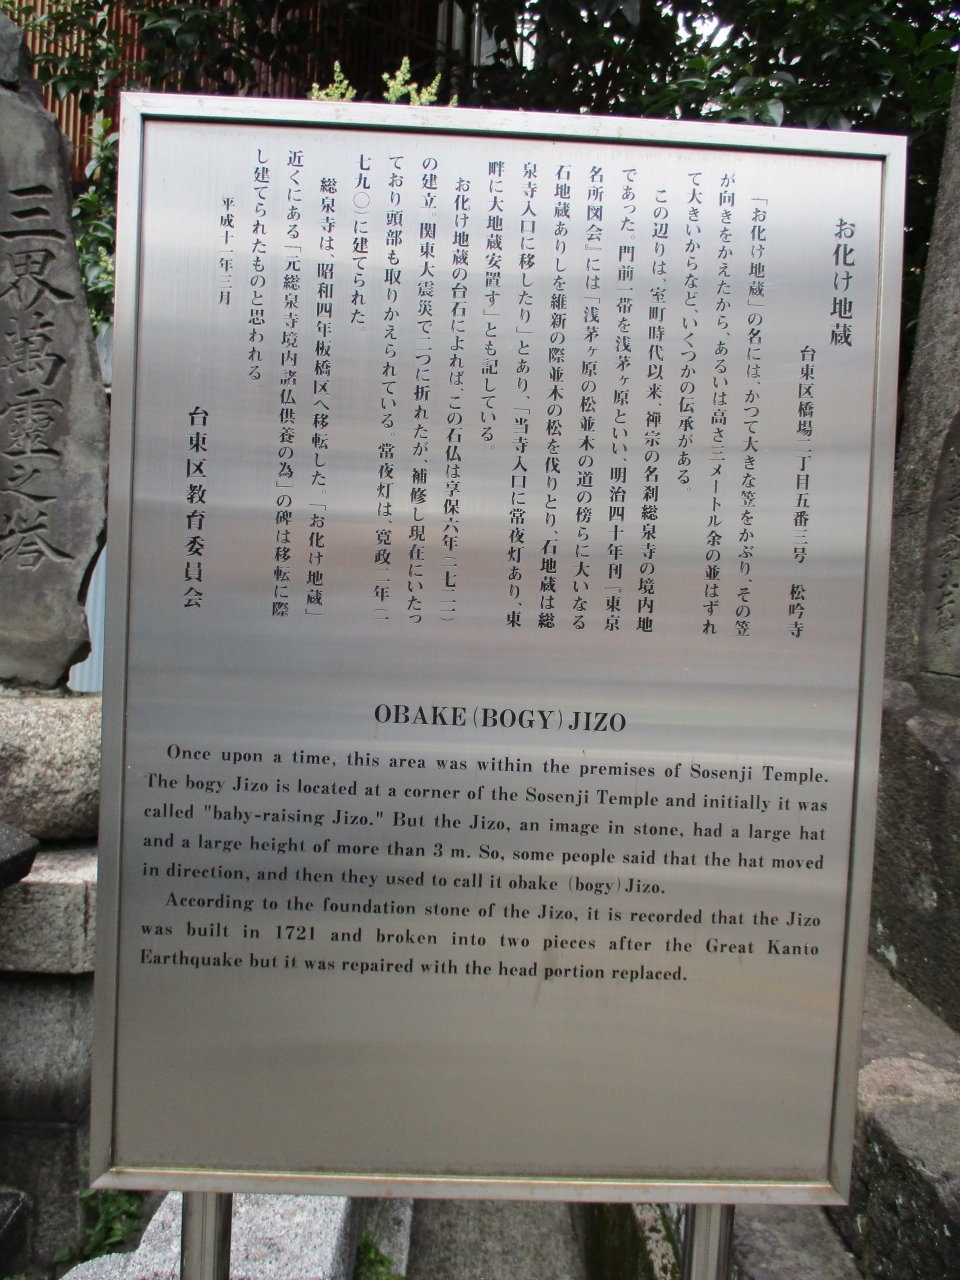 お化け地蔵
台東区橋場二丁目五番三号 松吟寺
「お化け地蔵」の名には、かつて大きな笠をかぶり、その笠
が向きをかえたから、あるいは高さ三メートル余の並はずれ
て大きいからなど、いくつかの伝承がある。
この辺りは、室町時代以来、禅宗の名刹総泉寺の境内地
であった。門前一帯を浅茅ヶ原といい、明治四十年刊『東京
名所図会』には「浅茅ヶ原の松並木の道の傍らに大いなる
石地蔵ありしを維新の際並木の松を伐りとり、石地蔵は総
泉寺入口に移したり」とあり、「当寺入口に常夜灯あり、東
畔に大地蔵安置す」とも記している。
お化け地蔵の台石によれば、この石仏は享保六年(一七二一)
の建立。関東大震災で二つに折れたが、補修し現在にいたっ
ており頭部も取りかえられている。常夜灯は、寛政二年(一
七九〇)に建てられた。
総泉寺は、昭和四年板橋区へ移転した。「お化け地蔵」
近くにある「元総泉寺境内諸仏供養の為」の碑は移転に際
し建てられたものと思われる
平成十一年三月
台東区教育委員会
OBAKE(BOGY)JIZO
Once upon a time, this area was within the premises of Sosenji Temple.
The bogy Jizo is located at a corner of the Sosenji Temple and initially it was
called "baby-raising Jizo." But the Jizo, an image in stone, had a large hat
and a large height of more than 3 m. So, some people said that the hat moved
in direction, and then they used to call it obake (bogy)Jizo.
According to the foundation stone of the Jizo, it is recorded that the Jizo
was built in 1721 and broken into two pieces after the Great Kanto
Earthquake but it was repaired with the head portion replaced.
三界萬霊之塔